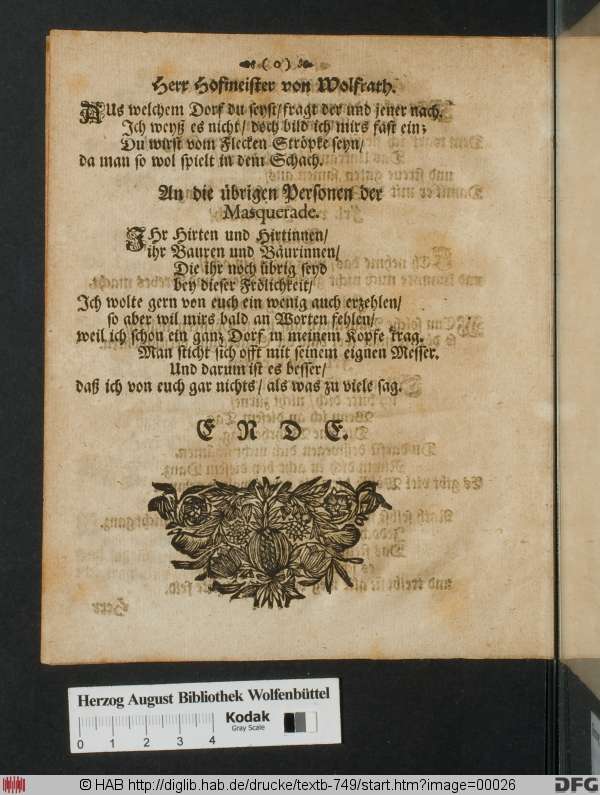 ( o )
Herr Hofmeister von Wolfrath.
AUs welchem Dorf du seyst/ fragt der und jener nach.
Ich weyß es nicht/ doch bild ich mirs fast ein;
Du wirst vom Flecken Ströpke seyn/
da man so wol spielt in dem Schach.
An die übrigen Personen der
Masquerade.
IHr Hirten und Hirtinnen/
ihr Bauren und Bäurinnen/
Die ihr noch übrig seyd
bey dieser Frölichkeit/
Ich wolte gern von euch ein wenig auch erzehlen/
so aber wil mirs bald an Worten fehlen/
weil ich schon ein ganz Dorf in meinem Kopfe trag.
Man sticht sich offt mit seinem eignen Messer.
Und darum ist es besser/
daß ich von euch gar nichts/ als was zu viele sag.
E N D E.
Herzog August Bibliothek Wolfenbüttel
Kodak
Gray Scale
0 1 2 3 4
© HAB http://diglib.hab.de/drucke/textb-749/start.htm?image=00026
DFG